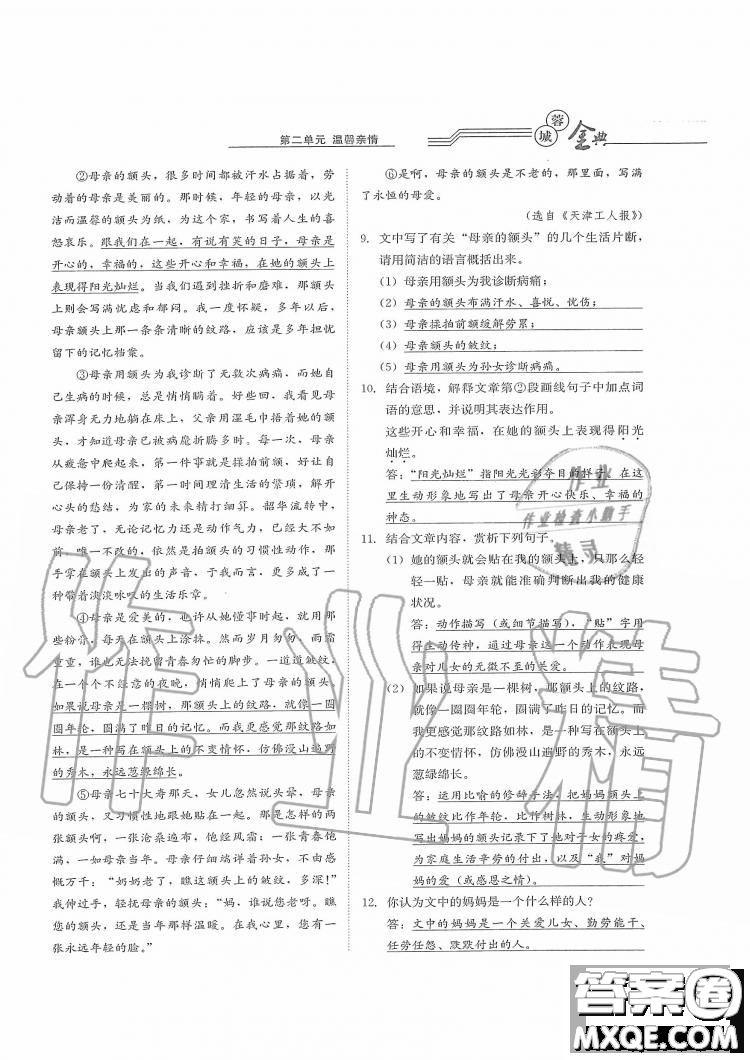 第二单元 温馨亲情
蓉城金典
②母亲的额头,许多时候都被汗水占据着,劳
动着的母亲是美丽的。那时候,年轻的母亲,以光
洁而温馨的额头为纸,为这个家,书写着人生的喜
怒哀乐。跟我们在一起,有说有笑的日子,母亲是
开心的,幸福的,这些开心和幸福,在她的额头上
表现得阳光灿烂。当我们遇到挫折和磨难,那额头
上则会写满忧虑和郁闷。我一度怀疑,多年以后,
母亲额头上那一条条清晰的纹路,应该是多年担忧
留下的记忆档案。
③母亲用额头为我诊断了无数次病痛,而她自
己生病的时候,总是沉默着。好些回,我看见母亲
浑身无力地躺在床上,父亲用湿毛巾捂着她的额
头,才知道母亲已被病魔折腾多时。每一次,母亲
从疲惫中醒来,第一件事就是揉拍前额,好让自
己保持一份清醒,第一时间理清生活的繁琐,解开
心头的愁结,为家的未来精打细算。韶华流转中,
母亲老了,无论记忆力还是动作气力,已经大不如
前,唯一不改的,依然是拍额头的习惯性动作,那
手掌在额头上发出的声音,于我而言,更多成了一
种带着淡淡咏叹的生活乐章。
④母亲是爱美的,也许从她懂事时起,就用那
些粉膏,每天在额头上涂抹。然而岁月匆匆,而霜
童童,谁也无法挽留青春匆忙的脚步。一道道皱纹,
在一个个不经意的夜晚,悄悄爬上了母亲的额头。
如果说母亲是一棵树,那额头上的纹路,就像一圈
圈年轮,圈满了昨日的记忆。而我更感觉那纹路如
林,是一种写在额头上的不变情怀,仿佛漫山遍野
的秀木,永远葱绿绵长。
⑤母亲七十大寿那天,女儿忽然说头晕,母亲
的额头,又习惯性地跟她贴在一起。那么亲近的两
张额头啊,一张沧桑遍布,饱经风霜;一张青春饱
满,一如母亲当年。母亲仔细端详着孙女,不由感
慨万千:“奶奶老了,瞧这额头上的皱纹,多深!”
我伸过手,轻抚母亲的额头:“妈,谁说您老了。瞧
您的额头,还是当年那样温暖。在我心里,您有一
张永远年轻的脸。”
⑥是啊,母亲的额头是不老的,那里面,写满
了永恒的母爱。
(选自《天津工人报》)
9. 文中写了有关“母亲的额头”的几个生活片断,
请用简洁的语言概括出来。
(1) 母亲用额头为我诊断病痛;
(2) 母亲的额头布满汗水、喜悦、忧伤;
(3) 母亲揉拍前额缓解劳累;
(4) 母亲额头的皱纹;
(5) 母亲用额头为孙女诊断病痛。
10. 结合语境,解释文章第②段画线句子中加点词
语的意思,并说明其表达作用。
这些开心和幸福,在她的额头上表现得阳光
灿烂。
答:“阳光灿烂”指阳光光彩夺目的样子。在这
里生动形象地写出了母亲开心快乐、幸福的
神态。
11. 结合文章内容,赏析下列句子。
(1) 她的额头就会贴在我的额头上,只那么轻
轻一贴,母亲就能准确判断出我的健康
状况。
答:动作描写(或细节描写),“贴”字用
得生动传神,通过母亲这一个动作表现母
亲对儿女的无微不至的关爱。
(2) 如果说母亲是一棵树,那额头上的纹路,
就像一圈圈年轮,圈满了昨日的记忆。而我
更感觉那纹路如林,是一种写在额头上的
不变情怀,仿佛漫山遍野的秀木,永远
葱绿绵长。
答:运用比喻的修辞手法,把妈妈额头上
的皱纹比作年轮、比作树林,生动形象地
写出妈妈的额头记录下了她对子女的疼爱,
为家庭生活辛劳的付出,以及“我”对妈
妈的爱(或感恩之情)。
12. 你认为文中的妈妈是一个什么样的人?
答:文中的妈妈是一个关爱儿女、勤劳能干、
任劳任怨、默默付出的人。
作业精灵
作业
作业检查小助手
精灵
答案圈
MXQE.COM